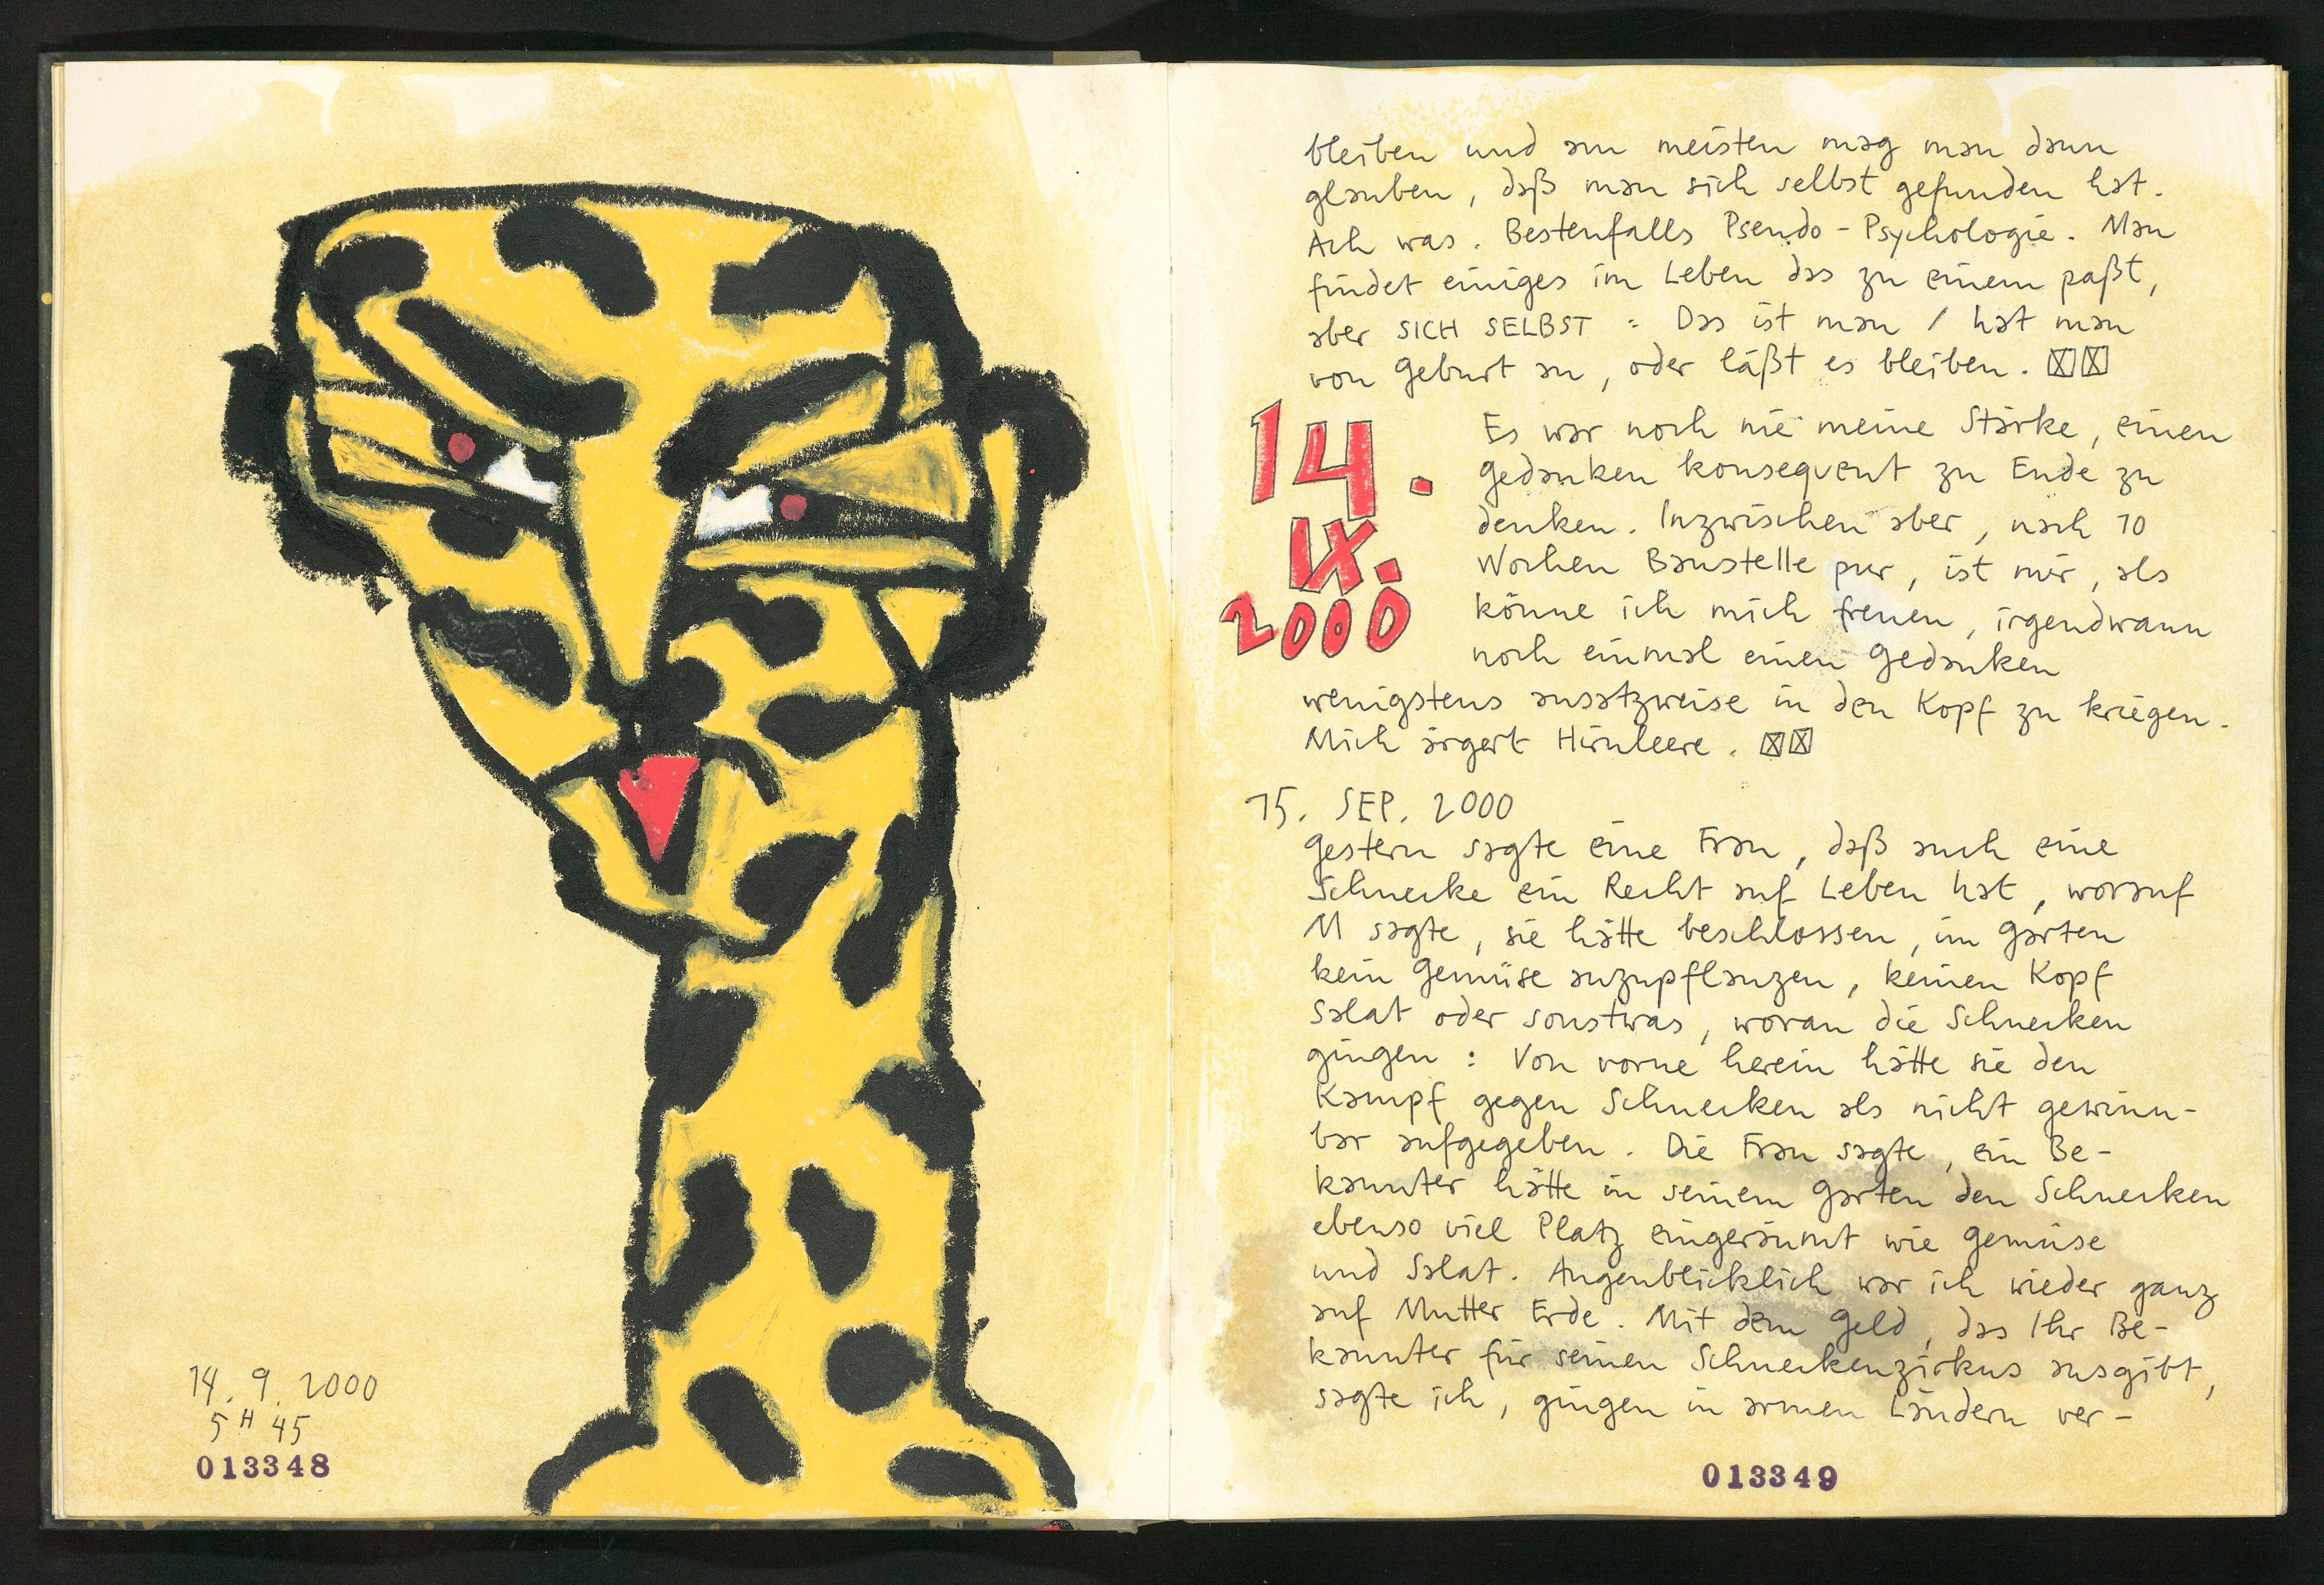 14. 9. 2000
5 H 45
013348
bleiben und am meisten mag man dann
glauben, daß man sich selbst gefunden hat.
Ach was. Bestenfalls Pseudo-Psychologie. Man
findet einiges im Leben das zu einem paßt,
aber SICH SELBST: Das ist man / hat man
von Geburt an, oder läßt es bleiben.
14.
IX.
2000
Es war noch nie meine Stärke, einen
Gedanken konsequent zu Ende zu
denken. Inzwischen aber, nach 10
Wochen Baustelle pur, ist mir, als
könne ich mich freuen, irgendwann
noch einmal einen Gedanken
wenigstens ansatzweise in den Kopf zu kriegen.
Mich ärgert Hirnleere.
15. SEP. 2000
Gestern sagte eine Frau, daß auch eine
Schnecke ein Recht auf Leben hat, worauf
M sagte, sie hätte beschlossen, im Garten
kein Gemüse anzupflanzen, keinen Kopf
Salat oder sonstwas, woran die Schnecken
gingen: Von vorne herein hätte sie den
Kampf gegen Schnecken als nicht gewinn-
bar aufgegeben. Die Frau sagte, ein Be-
kannter hätte in seinem Garten den Schnecken
ebenso viel Platz eingeräumt wie Gemüse
und Salat. Augenblicklich war ich wieder ganz
auf Mutter Erde. Mit dem Geld, das Ihr Be-
kannter für seinen Schneckenzirkus ausgibt,
sagte ich, gingen in armen Ländern ver-
013349